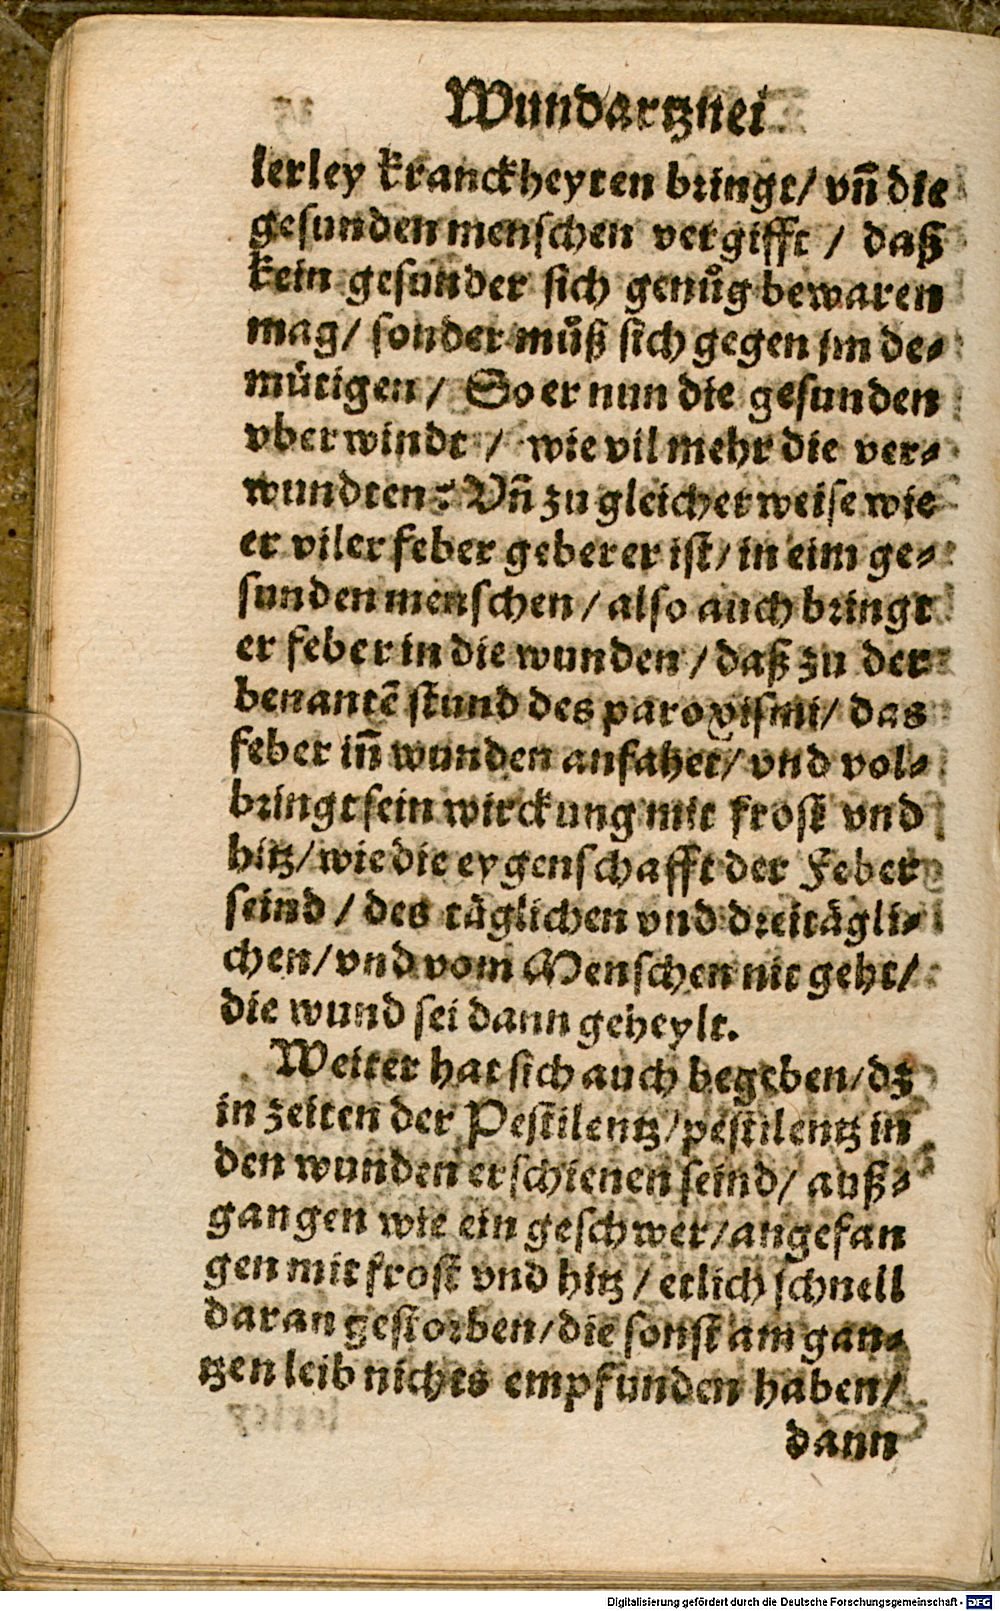 Wundartznei
lerley kranckheyten bringt/ vñ die
gesunden menschen vergifft / daß
kein gesunder sich genůg bewaren
mag/ sonder můß sich gegen jm de⸗
mütigen / So er nun die gesunden
vberwindt / wie vil mehr die ver⸗
wundten? Vñ zu gleicher weise wie
er viler feber geberer ist/ in eim ge⸗
sunden menschen / also auch bringt
er feber in die wunden / daß zu der
benantẽ stund des paroxismi/ das
feber in̄ wunden anfahet/ vnd vol⸗
bringt sein wirckung mit frost vnd
hitz/ wie die eygenschafft der Feber
seind / des täglichen vnd dreitägli⸗
chen/ vnd vom Menschen nit geht/
die wund sei dann geheylt.
Weiter hat sich auch begeben/ dz
in zeiten der Pestilentz/ pestilentz in
den wunden erschienen seind/ auß⸗
gangen wie ein geschwer/ angefan
gen mit frost vnd hitz / etlich schnell
daran gestorben/ die sonst am gan⸗
tzen leib nichts empfunden haben/
dann
Digitalisierung gefördert durch die Deutsche Forschungsgemeinschaft - DFG